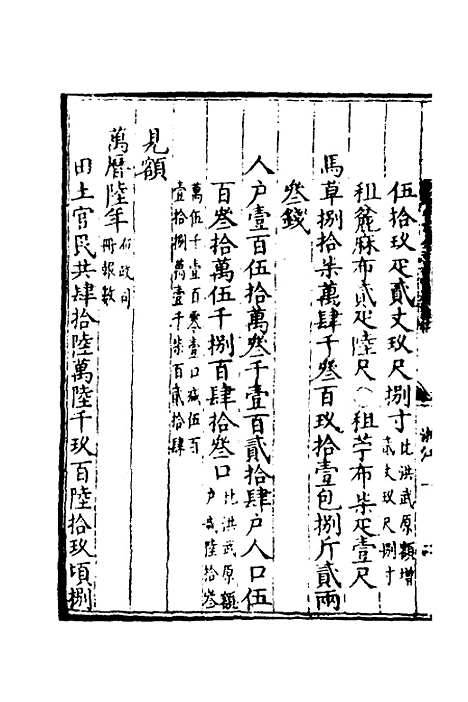 伍拾玖疋貳丈玖尺捌寸比洪武原額增
貳丈玖尺捌寸
租麄麻布貳疋陸尺○租苧布柒疋壹尺
馬草捌拾柒萬肆千叄百玖拾壹包捌斤貳兩
叄錢
人户壹百伍拾萬叄千壹百貳拾肆户人口伍
百叄拾萬伍千捌百肆拾叄口比洪武原額
户減陸拾叄
萬伍千壹百零壹口減伍百
壹拾捌萬壹千柒百貳拾肆
見額
萬曆陸年布政司
冊報數
田土官民共肆拾陸萬陸千玖百陸拾玖頃捌